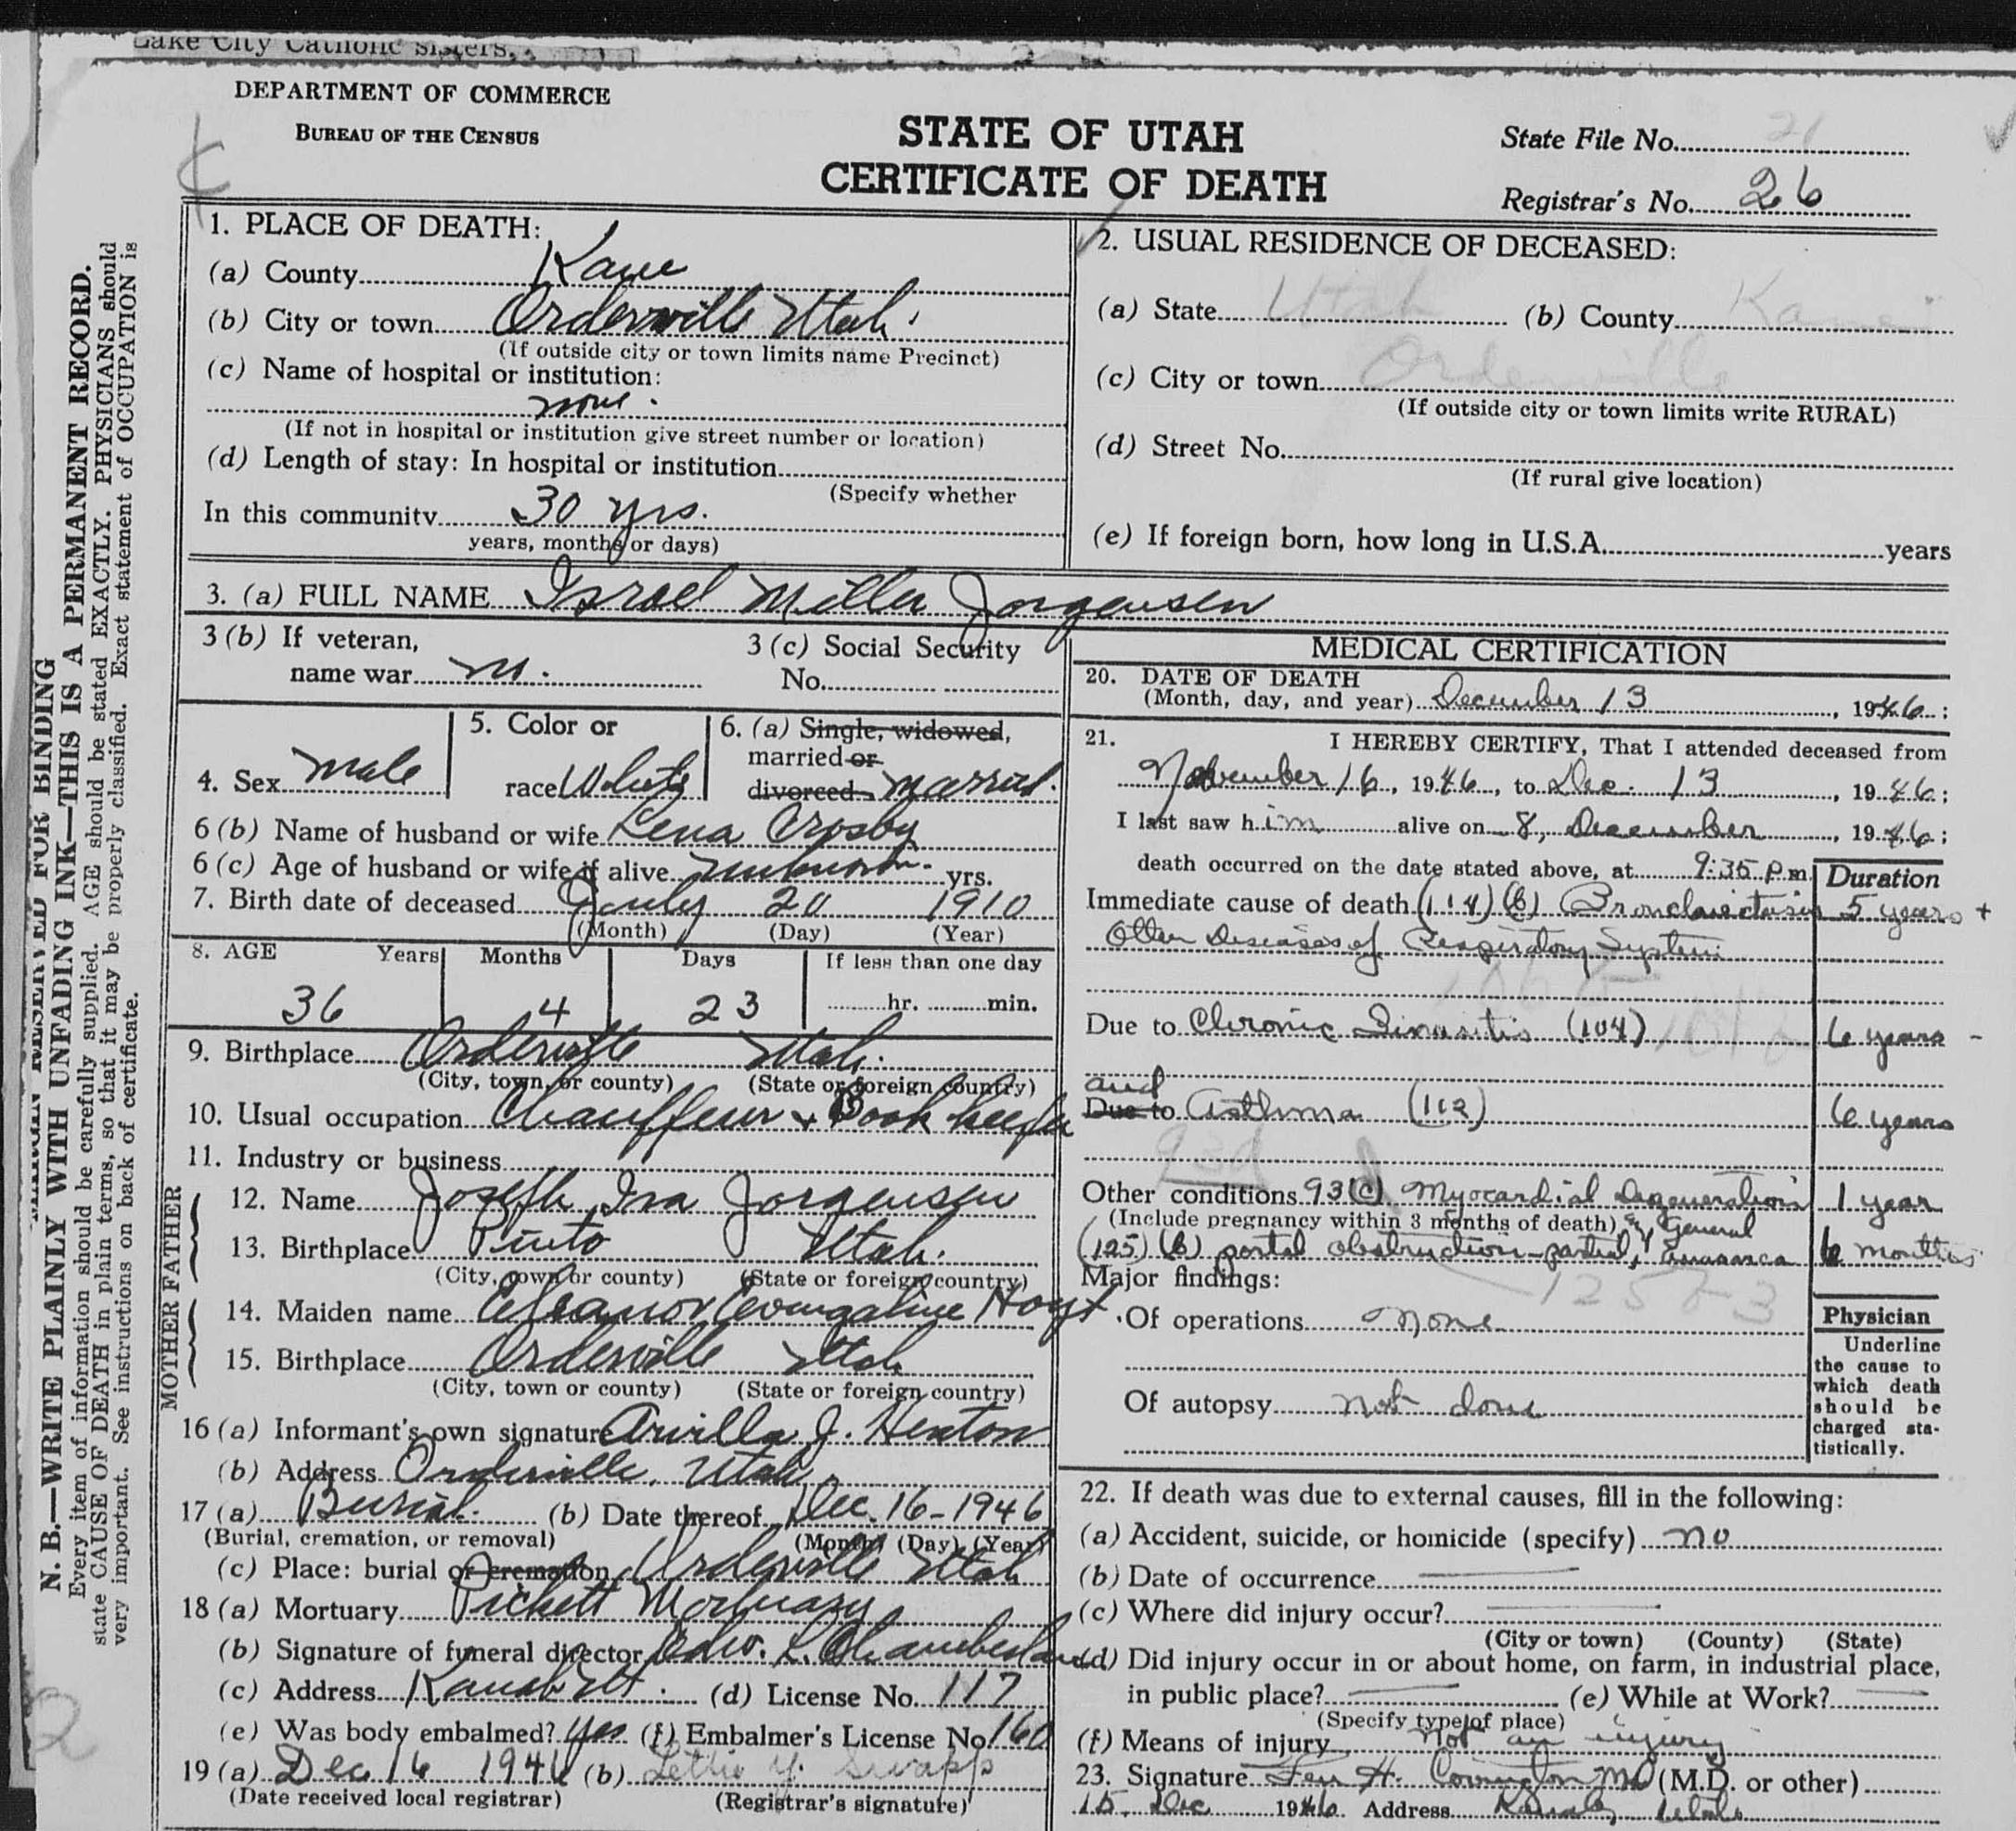 Lake City Catholic sisters,
DEPARTMENT OF COMMERCE
BUREAU OF THE CENSUS
STATE OF UTAH
CERTIFICATE OF DEATH
State File No. 21
Registrar's No. 26
MARGIN RESERVED FOR BINDING
N. B.—WRITE PLAINLY WITH UNFADING INK—THIS IS A PERMANENT RECORD.
Every item of information should be carefully supplied. AGE should be stated EXACTLY. PHYSICIANS should
state CAUSE OF DEATH in plain terms, so that it may be properly classified. Exact statement of OCCUPATION is
very important. See instructions on back of certificate.
1. PLACE OF DEATH:
(a) County Kane
(b) City or town Orderville Utah.
(If outside city or town limits name Precinct)
(c) Name of hospital or institution:
none.
(If not in hospital or institution give street number or location)
(d) Length of stay: In hospital or institution
(Specify whether
In this community 30 yrs.
years, months or days)
2. USUAL RESIDENCE OF DECEASED:
(a) State Utah (b) County Kane
(c) City or town Orderville
(If outside city or town limits write RURAL)
(d) Street No.
(If rural give location)
(e) If foreign born, how long in U.S.A. years
3. (a) FULL NAME Israel Miller Jorgensen
3 (b) If veteran,
name war
3 (c) Social Security
No.
4. Sex Male
5. Color or
race White
6. (a) Single, widowed,
married or
divorced Married.
6 (b) Name of husband or wife Lena Crosby
6 (c) Age of husband or wife if alive unknown yrs.
7. Birth date of deceased July 20 1910
(Month) (Day) (Year)
8. AGE Years Months Days If less than one day
36 4 23 hr. min.
9. Birthplace Orderville Utah.
(City, town, or county) (State or foreign country)
10. Usual occupation Chauffeur & Book keeper
11. Industry or business
FATHER
12. Name Joseph Ira Jorgensen
13. Birthplace Pinto Utah.
(City, town or county) (State or foreign country)
MOTHER
14. Maiden name Eleanor Evangaline Hoyt
15. Birthplace Orderville Utah
(City, town or county) (State or foreign country)
16 (a) Informant's own signature Arvilla J. Heaton
(b) Address Orderville, Utah
17 (a) Burial (b) Date thereof Dec. 16-1946
(Burial, cremation, or removal) (Month) (Day) (Year)
(c) Place: burial or cremation Orderville Utah
18 (a) Mortuary Pickett Mortuary
(b) Signature of funeral director Edw. L. Chamberlain
(c) Address Kanab Ut. (d) License No. 117
(e) Was body embalmed? Yes (f) Embalmer's License No. 160
19 (a) Dec 16 1946 (b) Lettie Y. Swapp
(Date received local registrar) (Registrar's signature)
MEDICAL CERTIFICATION
20. DATE OF DEATH
(Month, day, and year) December 13, 1946;
21. I HEREBY CERTIFY, That I attended deceased from
November 16, 1946, to Dec. 13, 1946;
I last saw him alive on 8, December, 1946;
death occurred on the date stated above, at 9:35 P.m. Duration
Immediate cause of death (114)(b) Bronchiectasis 5 years +
Other Diseases of Respiratory System
Due to Chronic Sinusitis (104) 6 years -
and
Due to Asthma (112) 6 years
93d
Other conditions 93(c) Myocardial Degeneration 1 year
(Include pregnancy within 3 months of death) & General
(125)(b) portal obstruction-partial, anasarca 6 months
Major findings:
Of operations None
Of autopsy not done
Physician
Underline
the cause to
which death
should be
charged sta-
tistically.
22. If death was due to external causes, fill in the following:
(a) Accident, suicide, or homicide (specify) no
(b) Date of occurrence
(c) Where did injury occur?
(City or town) (County) (State)
(d) Did injury occur in or about home, on farm, in industrial place,
in public place? (e) While at Work?
(Specify type of place)
(f) Means of injury not an injury
23. Signature H. Covington MD (M.D. or other)
15, Dec 1946 Address Kanab, Utah